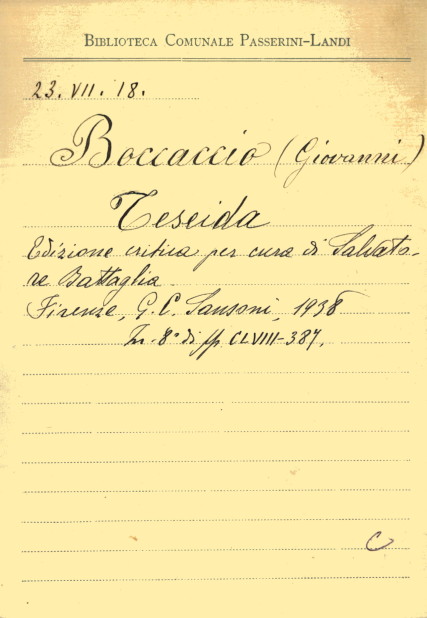 BIBLIOTECA COMUNALE PASSERINI-LANDI
23. VII. 18.
Boccaccio (Giovanni)
Teseida
Edizione critica per cura di Salvato-
re Battaglia
Firenze, G. C. Sansoni, 1938
In-8° di pp CLVIII-387.
C